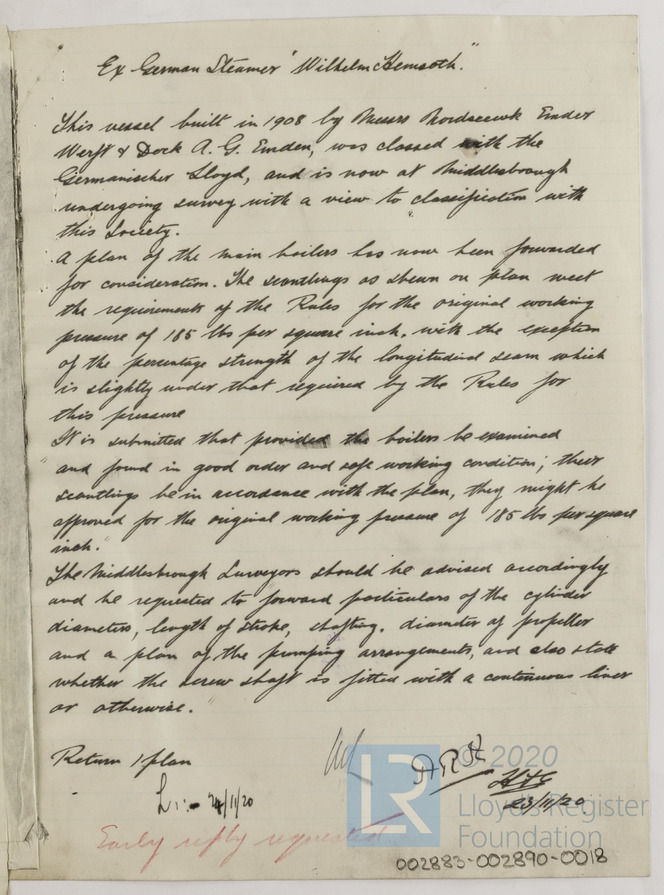 Ex German Steamer "Wilhelm Hemsoth."
This vessel built in 1908 by Messrs Nordseewk Emder
Werft & Dock A. G. Emden, was classed with the
Germanischer Lloyd, and is now at Middlesbrough
undergoing survey with a view to classification with
this Society.
A plan of the main boilers has now been forwarded
for consideration. The scantlings as shewn on plan meet
the requirements of the Rules for the original working
pressure of 185 lbs per square inch. with the exception
of the percentage strength of the longitudinal seam which
is slightly under that required by the Rules for
this pressure
It is submitted that provided the boilers be examined
and found in good order and safe working condition; their
scantlings be in accordance with the plan, they might be
approved for the original working pressure of 185 lbs per square
inch.
The Middlesbrough Surveyors should be advised accordingly
and be requested to forward particulars of the cylinder
diameters, length of stroke, shafting. diameter of propeller
and a plan of the pumping arrangements, and also state
whether the screw shaft is fitted with a continuous liner
or otherwise.
Return 1 plan
24/11/20
23/11/20
Early reply requested
LR
© 2020
Lloyd's Register
Foundation
002883-002890-0018